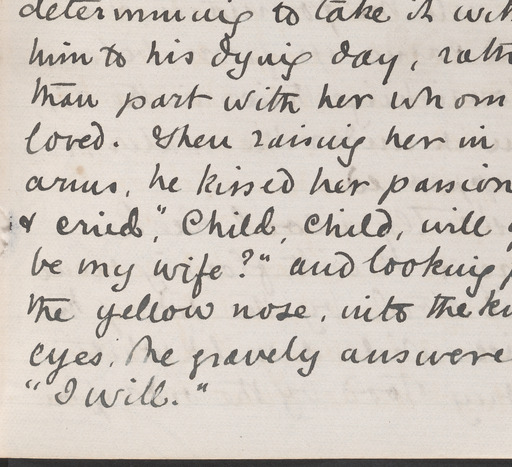 determining to take it with
him to his dying day, rath
than part with her whom
loved. Then raising her in
arms, he kissed her passion
& cried, "Child, Child, will
be my wife?" and looking p
the yellow nose, into the ki
eyes, he gravely answere
"I will."